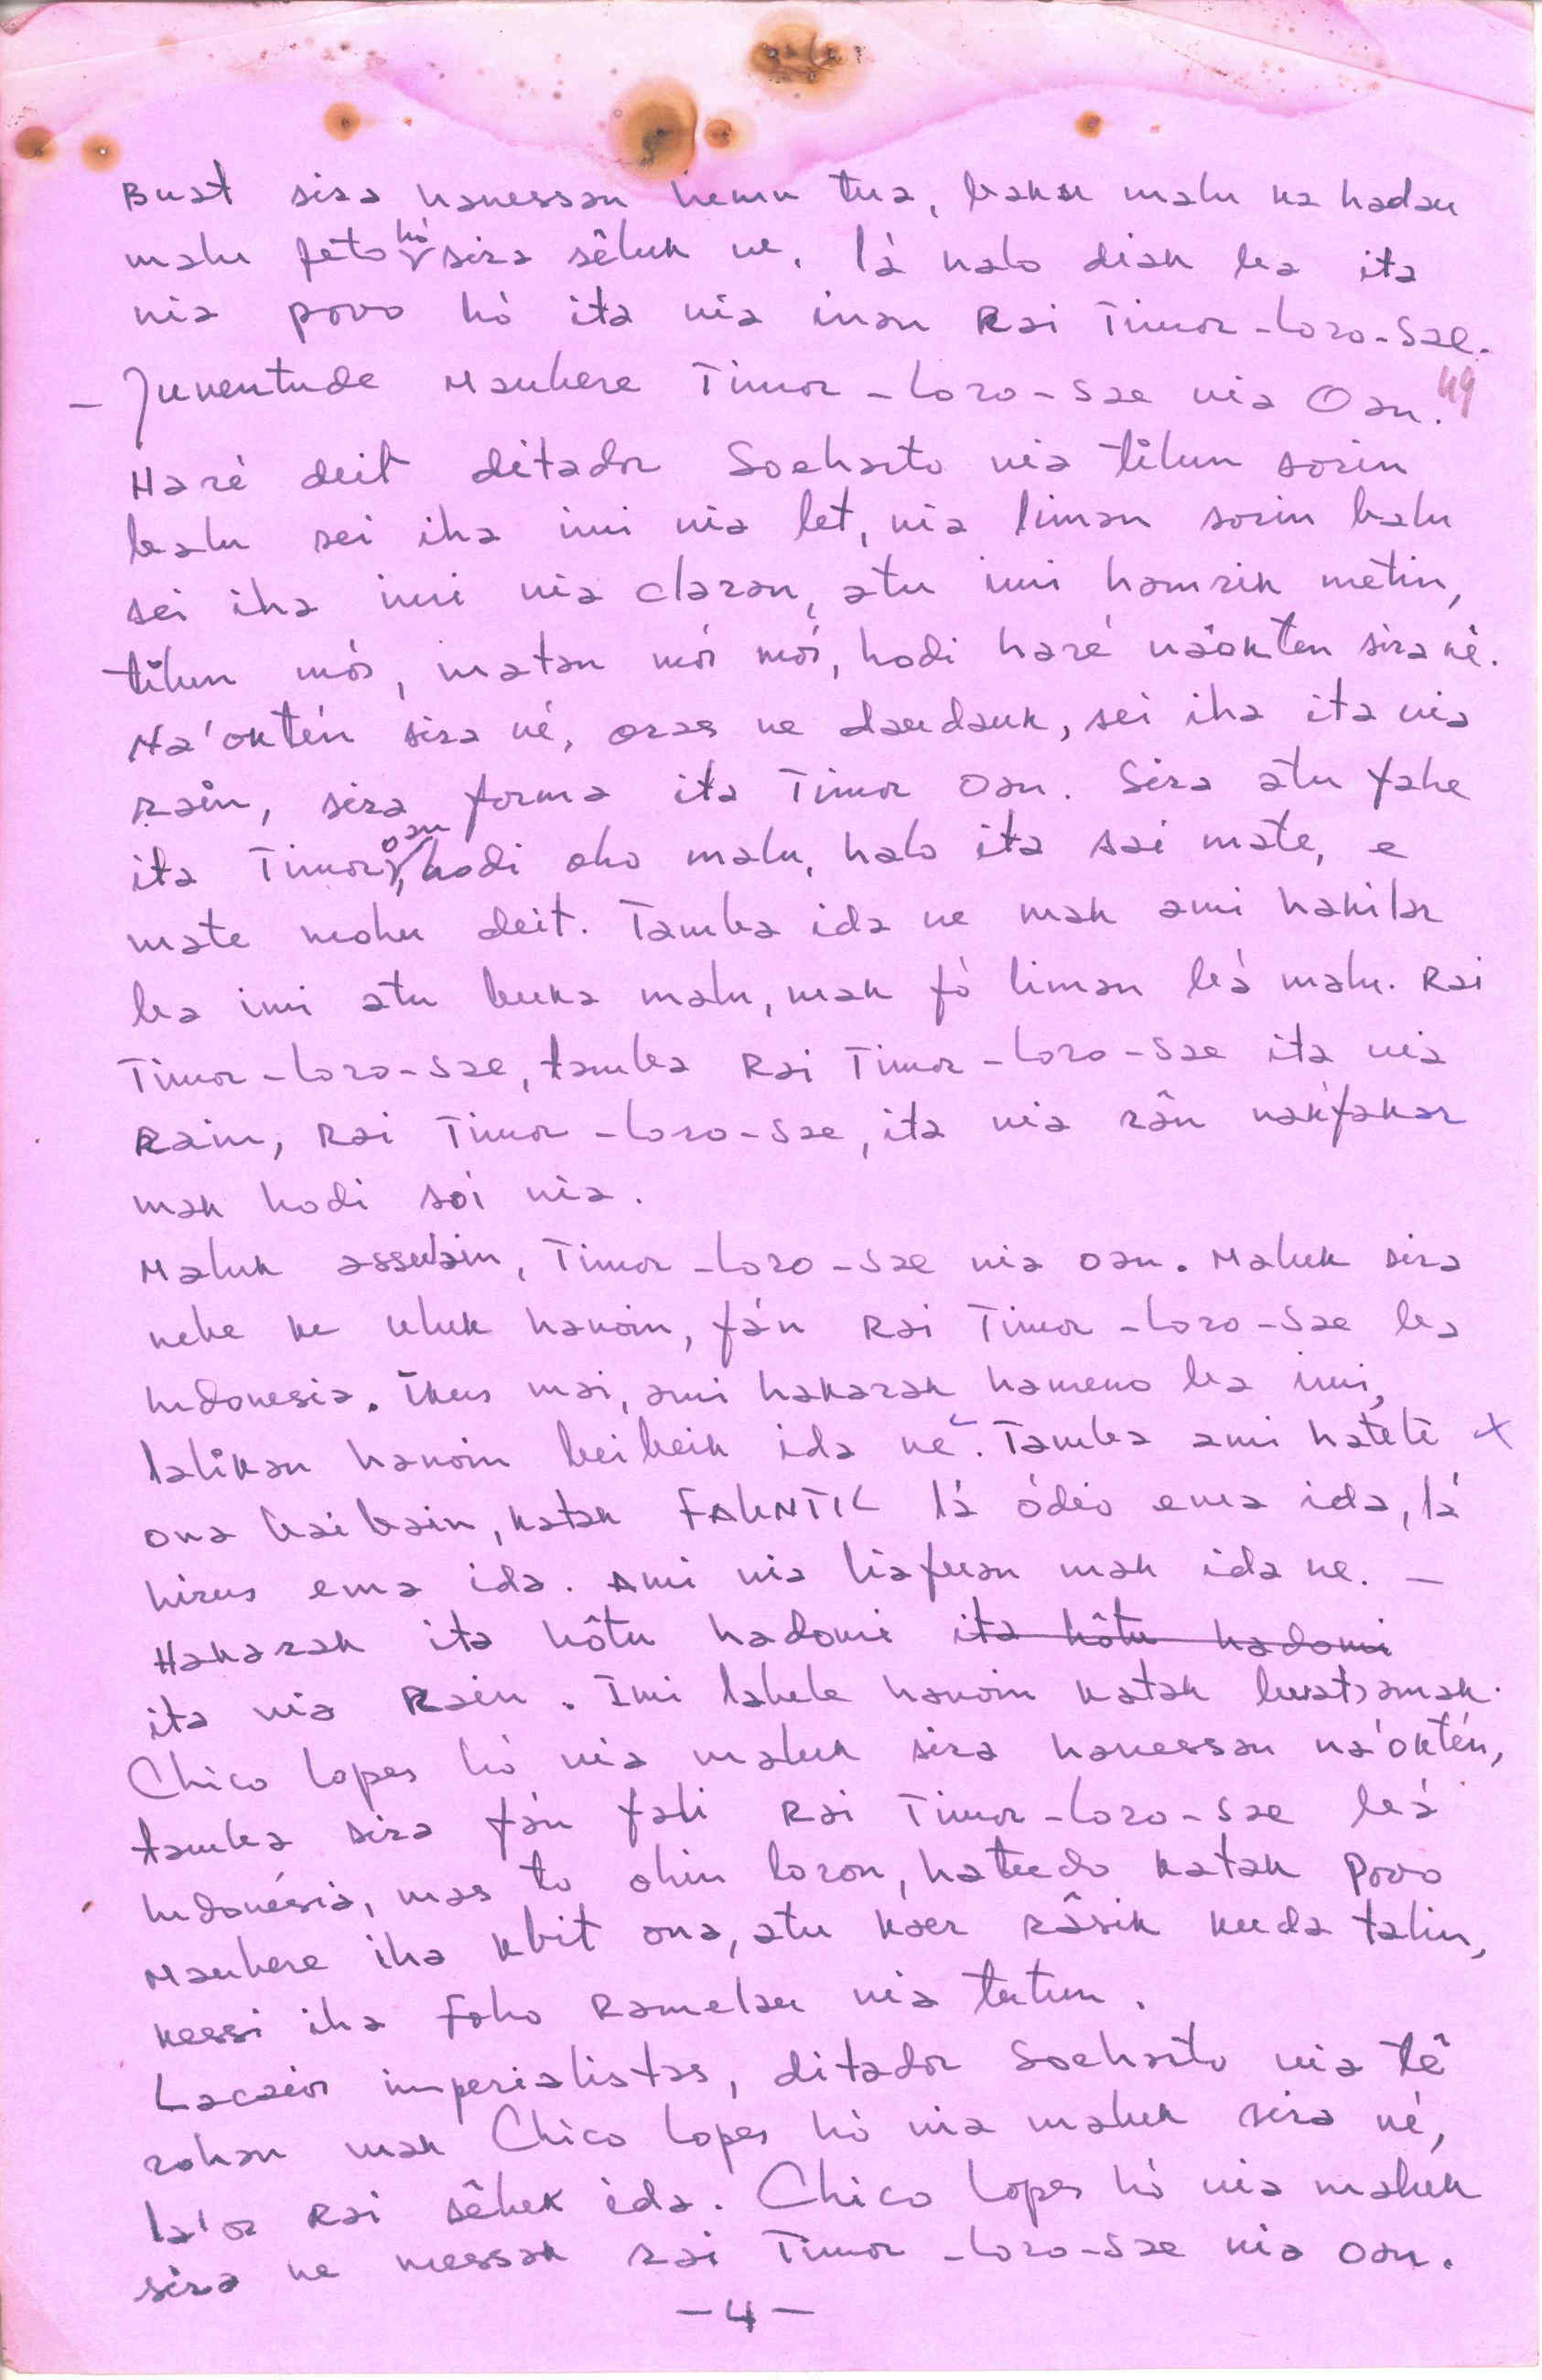 Buat sira hanessan hemu tua, baku malu ka hadau
malu feto hó sira sêluk ne, lá halo diak ba ita
nia povo hó ita nia inan Rai Timor-Loro-Sae.
- Juventude Maubere Timor-Loro-Sae nia Oan. 49
Haré deit ditador Soeharto nia tilun sorin
balu sei iha imi nia let, nia liman sorin balu
sei iha imi nia claran, atu imi hamrik metin,
tilun mós, matan mói mói, hodi haré náokten sira né.
Na'oktén sira né, oras ne daudauk, sei iha ita nia
rain, sira forma ita Timor Oan. Sira atu fahe
ita Timor oan, hodi oho malu, halo ita sai mate, e
mate mohu deit. Tamba ida ne mak ami hakilar
ba imi atu buka malu, mak fó liman bá malu. Rai
Timor-Loro-Sae, tamba Rai Timor-Loro-Sae ita nia
Rain, Rai Timor-Loro-Sae, ita nia rân nakfakar
mak hodi soi nia.
Maluk assuain, Timor-Loro-Sae nia oan. Maluk sira
nebe ke uluk hanoin, fán Rai Timor-Loro-Sae ba
Indonesia. Ikus mai, ami hakarak hameno ba imi,
lalikan hanoin beibeik ida ne. Tamba ami hatete x
ona baibain, katak FALINTIL lá ódio ema ida, lá
hirus ema ida. Ami nia liafuan mak ida ne. -
Hakarak ita hôtu hadomi ita hôtu hadomi
ita nia Rain. Imi labele hanoin katak buat, amak
Chico Lopes hó nia maluk sira hanessan ná'oktén,
tamba sira fán fali Rai Timor-Loro-Sae bá
Indonésia, mas to ohin loron, hatudo katak Povo
Maubere iha kbit ona, atu kaer râsik kuda talin,
kessi iha Foho Ramelau nia tutun.
Lacaios imperialistas, ditador Soeharto nia tê
rohan mak Chico Lopes hó nia maluk sira né,
la'os Rai sêluk ida. Chico Lopes hó nia maluk
sira ne messak rai Timor-Loro-Sae nia oan.
-4-